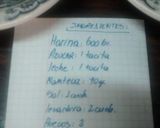 INGREDIENTES:
Harina: 600 gr.
Azucar: 1 tacita
leche: 1 tacita
Manteca: 90gr
Sal: 1 cucch.
levadura: 2 cucch.
Huevos: 3